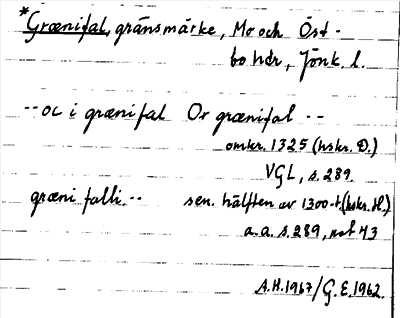 *Grænifal, gränsmärke, Mo och Öst-
bo hdr, Jönk. l.
-- oc i grænifal Or grænifal --
omkr. 1325 (hskr. D.)
VGL, s. 289.
græni falli. -- sen. hälften av 1300-t. (hskr. H.)
a. a. s. 289, not 43
A.H. 1967/G.E. 1962.